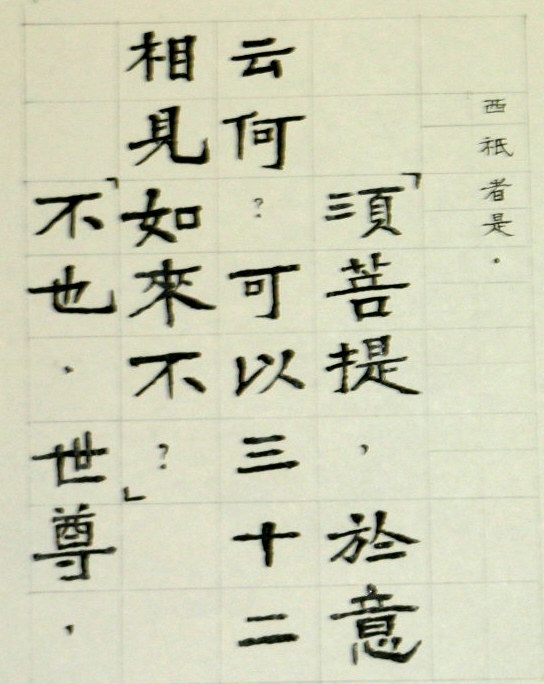 西祇者是。
「須菩提，於意
云何？可以三十二
相見如來不？」
「不也。世尊，